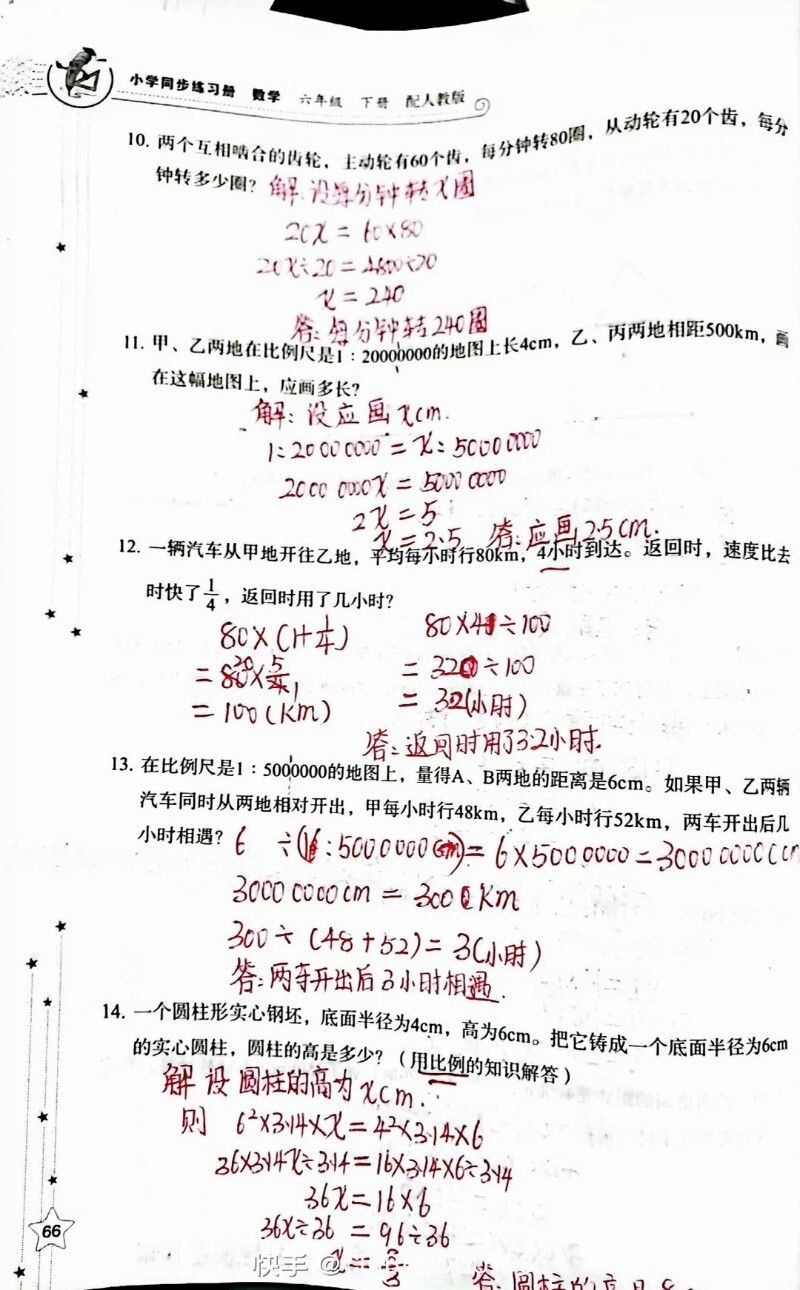 小学同步练习册 数学 六年级 下册 配人教版
10. 两个互相啮合的齿轮，主动轮有60个齿，每分钟转80圈，从动轮有20个齿，每分
钟转多少圈？
解：设每分钟转x圈
20x = 60×80
20x÷20 = 4800÷20
x = 240
答：每分钟转240圈
11. 甲、乙两地在比例尺是1：20000000的地图上长4cm，乙、丙两地相距500km，画
在这幅地图上，应画多长？
解：设应画xcm.
1:20000000 = x:50000000
20000000x = 50000000
2x = 5
x = 2.5 答：应画2.5cm.
12. 一辆汽车从甲地开往乙地，平均每小时行80km，4小时到达。返回时，速度比去
时快了1/4，返回时用了几小时？
80×(1+1/4) 80×4÷100
= 80×5/4 = 320÷100
= 100(km) = 3.2(小时)
答：返回时用了3.2小时.
13. 在比例尺是1：5000000的地图上，量得A、B两地的距离是6cm。如果甲、乙两辆
汽车同时从两地相对开出，甲每小时行48km，乙每小时行52km，两车开出后几
小时相遇？
6÷(1:5000000) = 6×5000000 = 30000000(cm
30000000cm = 300km
300÷(48+52) = 3(小时)
答：两车开出后3小时相遇.
14. 一个圆柱形实心钢坯，底面半径为4cm，高为6cm。把它铸成一个底面半径为6cm
的实心圆柱，圆柱的高是多少？（用比例的知识解答）
解 设圆柱的高为xcm.
则 6²×3.14×x = 4²×3.14×6
36×3.14x÷3.14 = 16×3.14×6÷3.14
36x = 16×6
36x÷36 = 96÷36
x = 8/3
答：圆柱的高是
66
快手 @